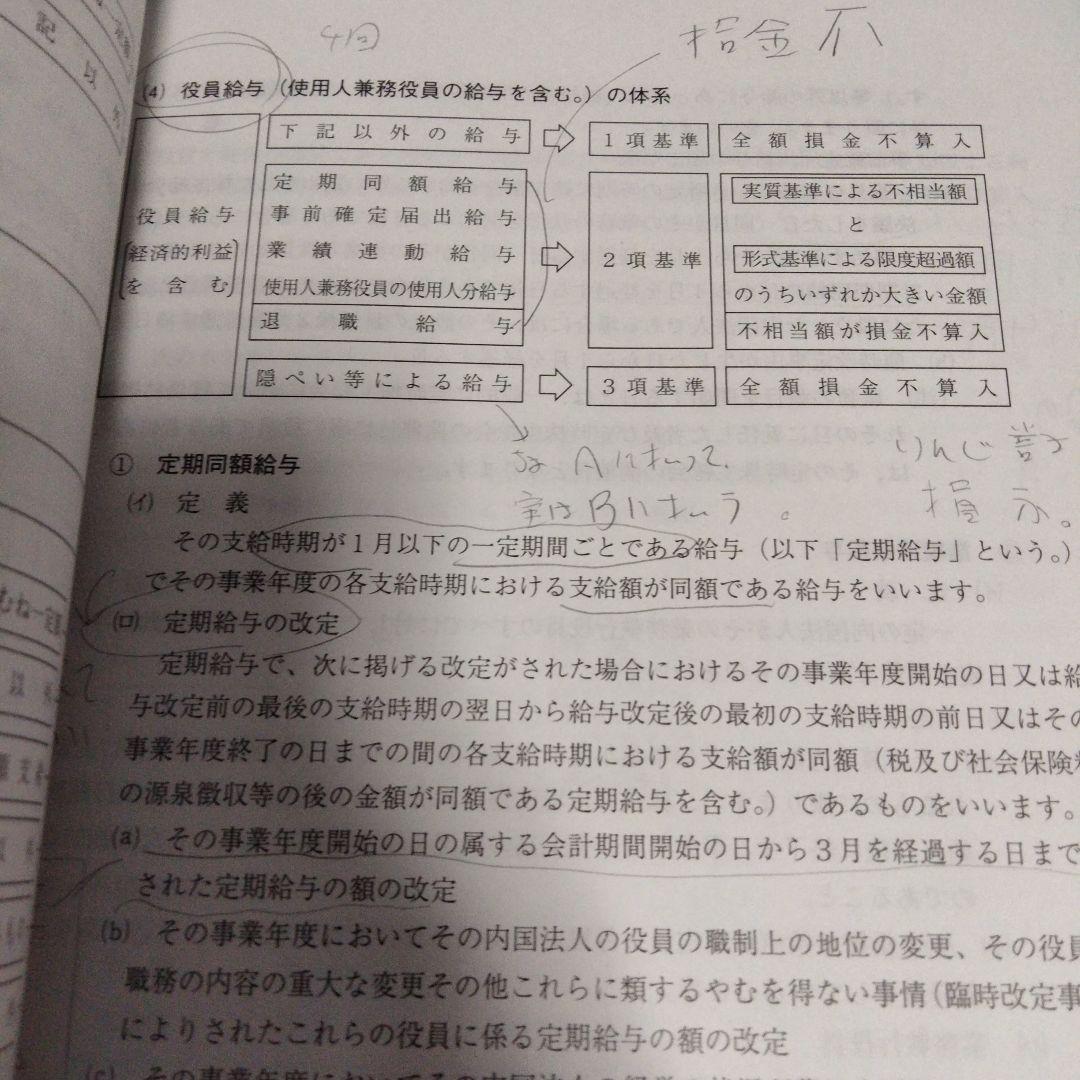 4回
損金不
(4) 役員給与（使用人兼務役員の給与を含む。）の体系
下記以外の給与 ⇨ 1項基準 全額損金不算入
役員給与
〔経済的利益
を含む〕
定期同額給与
事前確定届出給与
業績連動給与
使用人兼務役員の使用人分給与
退職給与
⇨ 2項基準
実質基準による不相当額
と
形式基準による限度超過額
のうちいずれか大きい金額
不相当額が損金不算入
隠ぺい等による給与 ⇨ 3項基準 全額損金不算入
① 定期同額給与
(イ) 定義
その支給時期が1月以下の一定期間ごとである給与（以下「定期給与」という。）
でその事業年度の各支給時期における支給額が同額である給与をいいます。
(ロ) 定期給与の改定
定期給与で、次に掲げる改定がされた場合におけるその事業年度開始の日又は給
与改定前の最後の支給時期の翌日から給与改定後の最初の支給時期の前日又はその
事業年度終了の日までの間の各支給時期における支給額が同額（税及び社会保険料
の源泉徴収等の後の金額が同額である定期給与を含む。）であるものをいいます。
(a) その事業年度開始の日の属する会計期間開始の日から3月を経過する日まで
された定期給与の額の改定
(b) その事業年度においてその内国法人の役員の職制上の地位の変更、その役員
職務の内容の重大な変更その他これらに類するやむを得ない事情（臨時改定事
によりされたこれらの役員に係る定期給与の額の改定
(c) その事業年度においてその内国法人の経営